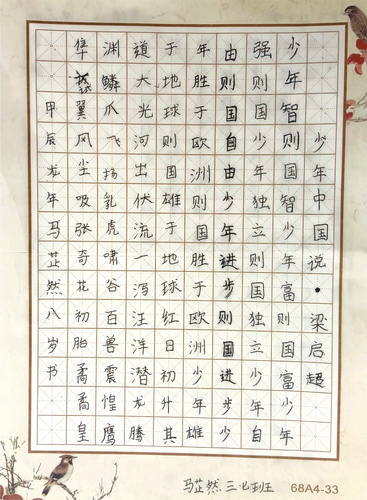 少年中国说·梁启超
少年智则国智少年富则国富少年
强则国少年独立则国独立少年自
由则国自由少年进步则国进步少
年胜于欧洲则国胜于欧洲少年雄
于地球则国雄于地球红日初升其
道大光河出伏流一泻汪洋潜龙腾
渊鳞爪飞扬乳虎啸谷百兽震惶鹰
隼试翼风尘吸张奇花初胎矞矞皇
甲辰龙年马芷然八岁书
马芷然 三
68A4-33